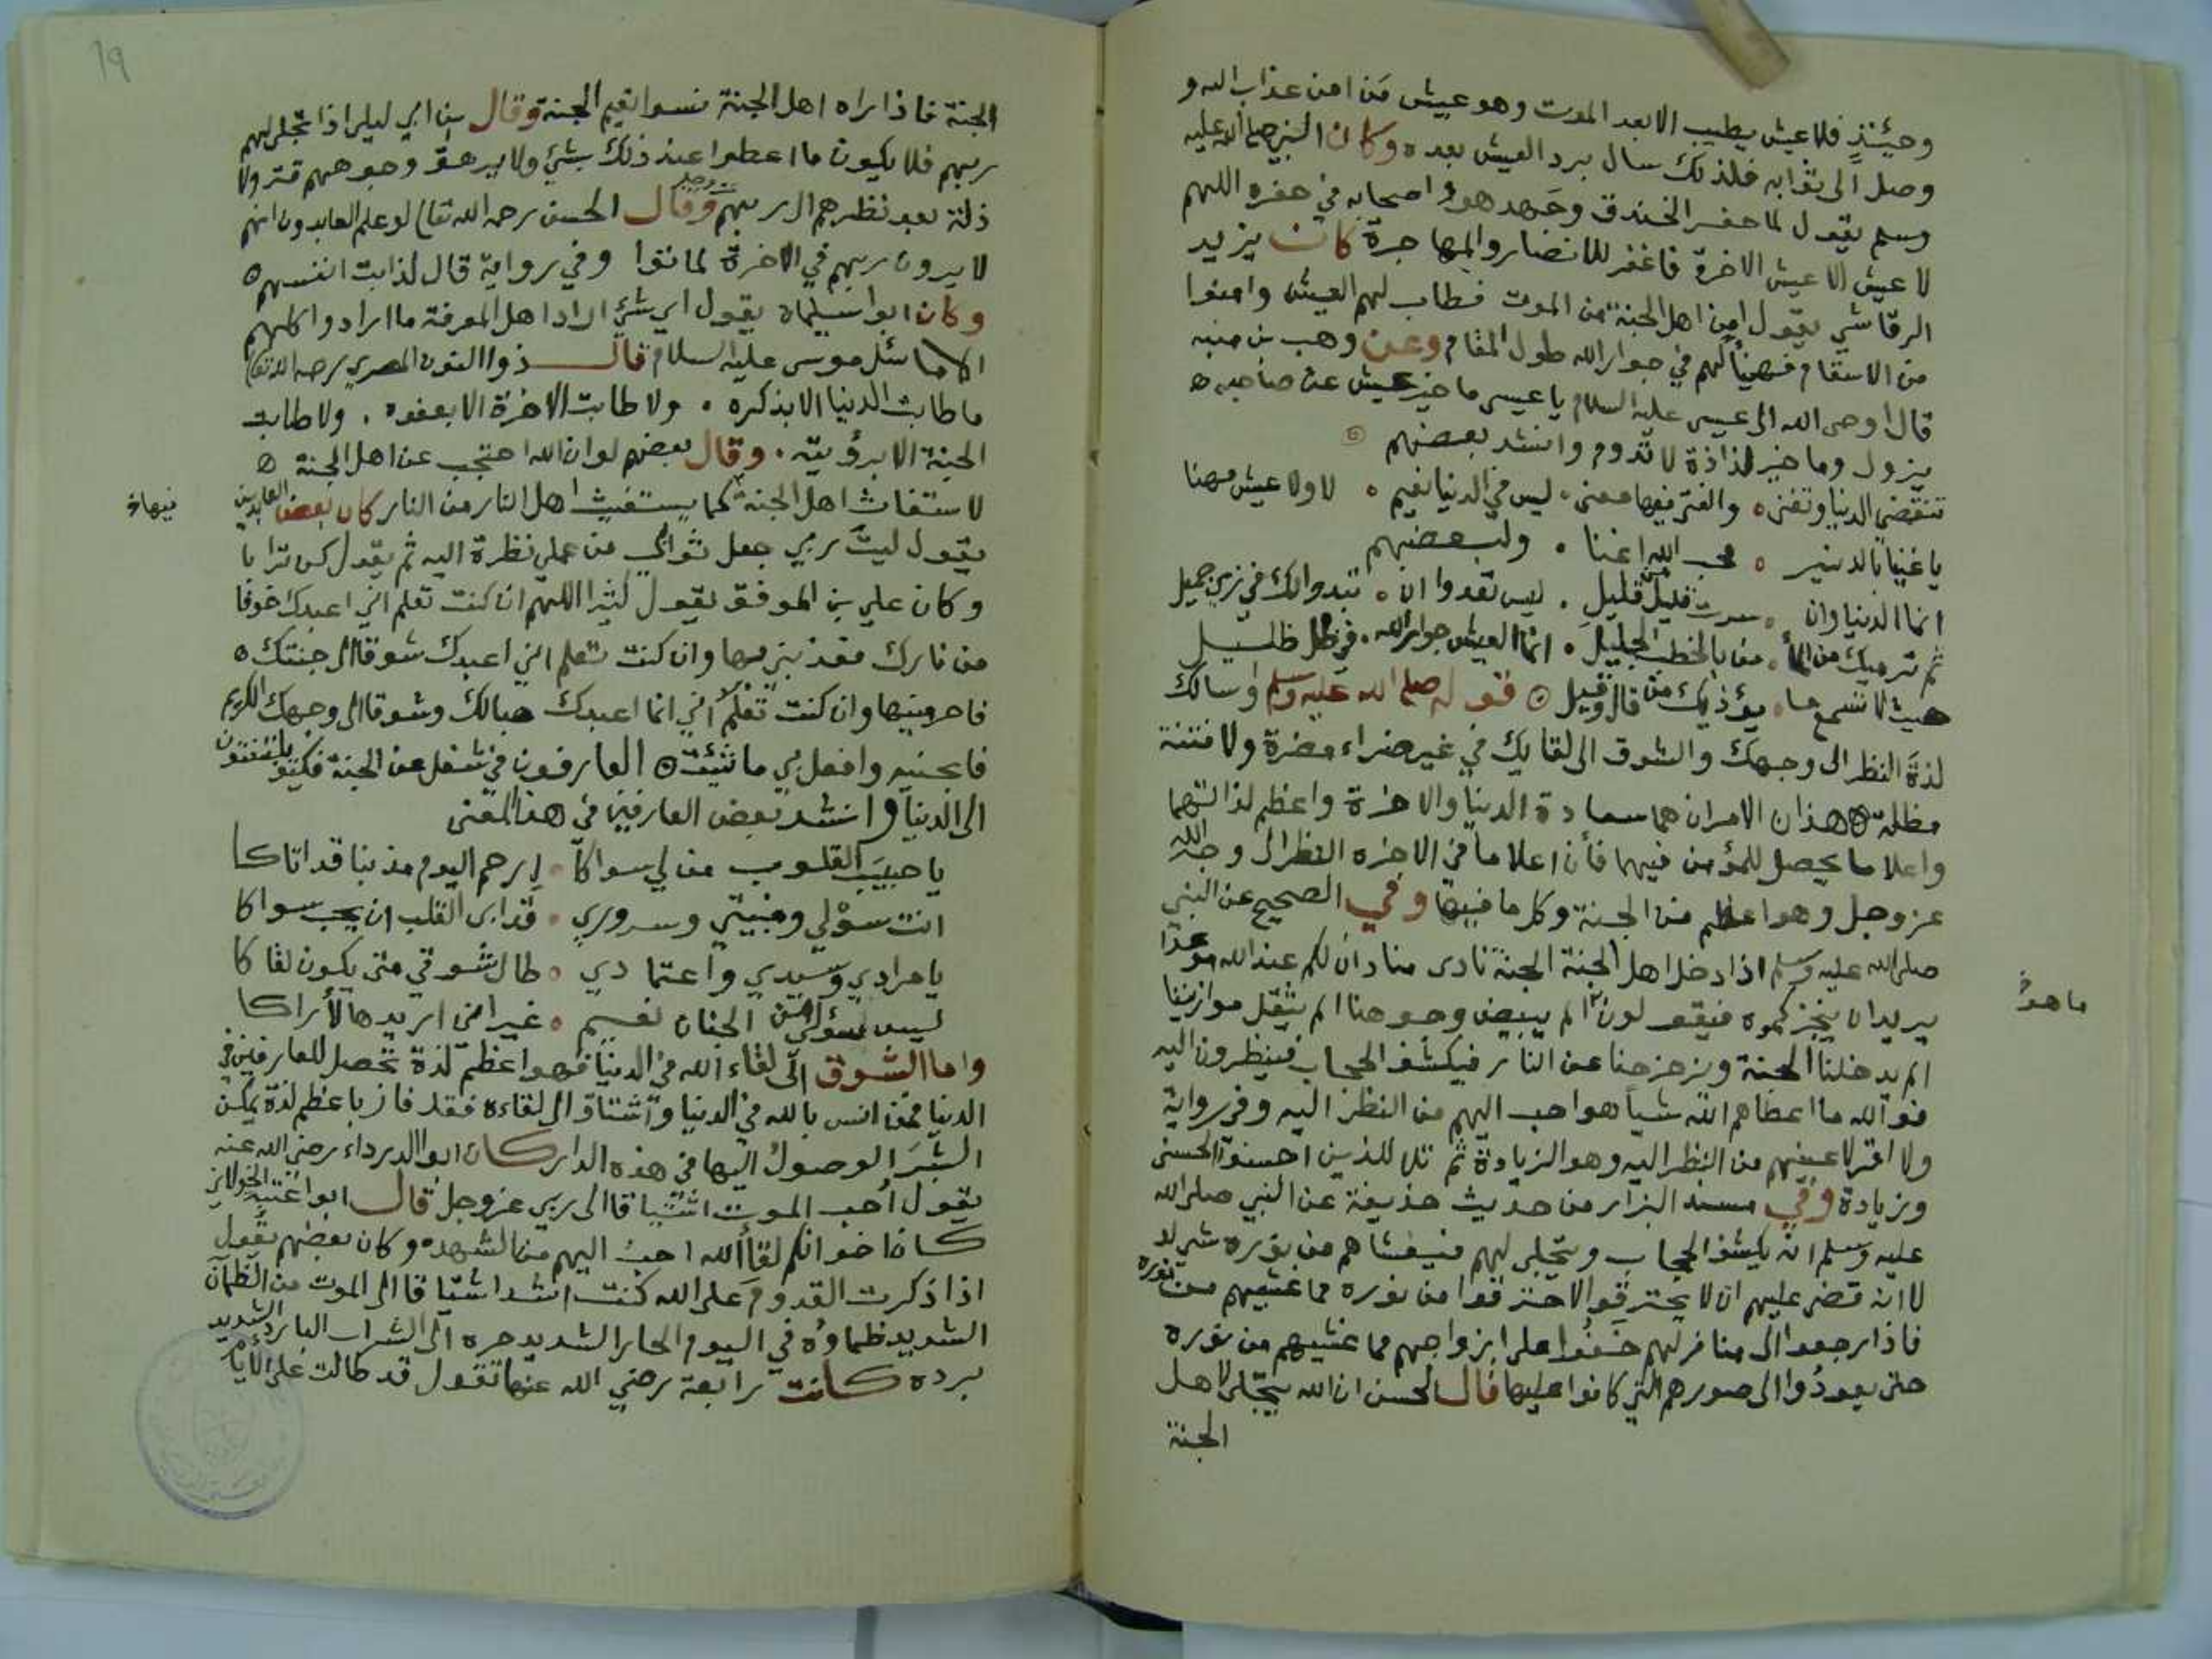 وحيئنذ فلا عيش يطيب الا بعد الموت وهو عيش مَن امن عذاب الله و
وصل الى ثوابه فلذلك سال برد العيش بعده وكان النبي صلى الله عليه
وسلم يقول لما حفر الخندق وجهد هو واصحابه في حفره اللهم
لا عيش الا عيش الاخرة فاغفر للانصار والمهاجرة كان يزيد
الرقاشي يقول امن اهل الجنة من الموت فطاب لهم العيش وامنوا
من الاسقام فهنيأ لهم في جوار الله طول المقام وعن وهب بن منبه
قال اوحى الله الى عيسى عليه السلام يا عيسى ما خير عيش عن صاحبه
يزول وما خير لذاذة لا تدوم وانشد بعضهم
تنقضي الدنيا وتفنى والفتى فيها معنى ليس في الدنيا نعيم لا ولا عيش مهنا
يا غنيا بالدنانير محب الله اغنا ولبعضهم
انما الدنيا وان سرت قليل من قليل ليس تعدوا ان تبدوا لك في زي جميل
ثم ترميك من المأمن بالخطب الجليل انما العيش جوار الله في ظل ظليل
حيث لا تسمع ما يؤذيك من قال وقيل قوله صلى الله عليه وسلم واسالك
لذة النظر الى وجهك والشوق الى لقايك في غير ضراء مضرة ولا فتنة
مظلة هذان الامران هما سعادة الدنيا والاخرة واعظم لذاتهما
واعلا ما يحصل للمؤمن فيهما فأن اعلا ما في الاخره النظر الى وجه الله
عز وجل وهو اعظم من الجنة وكل ما فيها وفي الصحيح عن النبي
صلى الله عليه وسلم اذا دخل اهل الجنة الجنة نادى مناد ان لكم عند الله موعدا
ما هو
يريد ان ينجزكموه فيقولون الم يبيض وجوهنا الم يثقل موازيننا
الم يدخلنا الجنة ويزحزحنا عن النار فيكشف الحجاب فينظرون اليه
فوالله ما اعطاهم الله شيأ هو احب اليهم من النظر اليه وفي رواية
ولا اقر لاعينهم من النظر اليه وهو الزيادة ثم تلا للذين احسنوا الحسنى
وزيادة وفي مسند البزار من حديث حذيفة عن النبي صلى الله
عليه وسلم ان يكشف الحجاب ويتجلى لهم فيغشاهم من نوره شي لو
لا انه قضى عليهم ان لا يحترقوا لاحترقوا من نوره مما غشيهم من نوره
فاذا رجعوا الى منازلهم خفوا على ازواجهم مما غشيهم من نوره
حتى يعودوا الى صورهم التي كانوا عليها قال الحسن ان الله يتجلى لاهل
الجنة
19
الجنة فاذا راه اهل الجنة نسوا نعيم الجنة وقال بن ابي ليلى اذا تجلى لهم
ربهم فلا يكون ما اعطوا عند ذلك بشيء ولا يرهق وجوههم قتر ولا
ذلة بعد نظرهم الى ربهم عز وجل وقال الحسن رحمه الله تعالى لو علم العابدون انهم
لا يرون ربهم في الاخرة لماتوا وفي رواية قال لذابت انفسهم
وكان ابوا سليمان يقول اي شيء اراد اهل المعرفة ما ارادوا كلهم
الا ما سئل موسى عليه السلام قال ذوا النون المصري رحمه الله تعالى
ما طابت الدنيا الا بذكره ولا طابت الاخرة الا بعفوه ولا طابت
الجنة الا برؤيته وقال بعضهم لو ان الله احتجب عن اهل الجنة
لاستغاث اهل الجنة كما يستغيث اهل النار من النار كان بعض العابدين
يقول ليت ربي جعل ثوابي من عملي نظرة اليه ثم يقول كن ترابا
وكان علي بن الموفق يقول كثيرا اللهم ان كنت تعلم اني اعبدك خوفا
من نارك فعذبني بها وان كنت تعلم اني اعبدك شوقا الى جنتك
فاحرمنيها وان كنت تعلم اني انما اعبدك حبا لك وشوقا الى وجهك الكريم
فابحنيه وافعل بي ما شئت العارفون في شغل عن الجنة فكيف يلتفتون
الى الدنيا وانشد بعض العارفين في هذا المعنى
يا حبيب القلوب من لي سواكا ارحم اليوم مذنبا قد اتاكا
انت سؤلي ومنيتي وسروري قد ابى القلب ان يحب سواكا
يا مرادي وسيدي واعتمادي طال شوقي متى يكون لقاكا
ليس سؤلي من الجنان نعيم غير اني اريدها لأراكا
واما الشوق الى لقاء الله في الدنيا فهو اعظم لذة تحصل للعارفين في
الدنيا فمن انس بالله في الدنيا واشتاق الى لقاءه فقد فاز باعظم لذة يمكن
البشر الوصول اليها في هذه الدار كان ابوا الدرداء رضي الله عنه
يقول أحب الموت اشتياقا الى ربي عز وجل قال ابوا عتبة الخولاني
كان اخوانكم لقأ الله احب اليهم من الشهد وكان بعضهم يقول
اذا ذكرت القدوم على الله كنت اشد اشتياقا الى الموت من الظمآن
الشديد ظماؤه في اليوم الحار الشديد حره الى الشراب البارد الشديد
برده كانت رابعة رضي الله عنها تقول قد طالت على الأيام